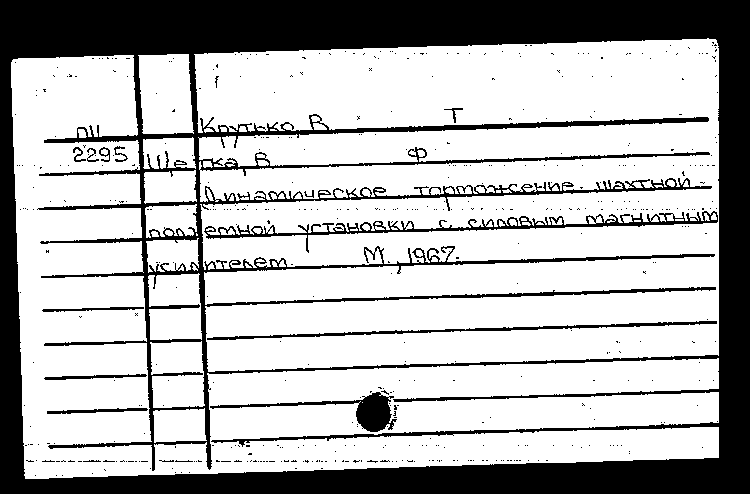 ПII Крутько, В Т
2295 Щетка, В Ф
Динамическое торможение шахтной
подъемной установки с силовым магнитным
усилителем М., 1967.